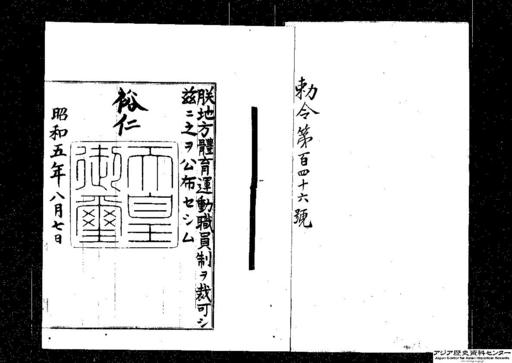 勅令第百四十六號
朕地方體育運動職員制ヲ裁可シ
茲ニ之ヲ公布セシム
裕仁
天皇
御璽
昭和五年八月七日
アジア歴史資料センター
Japan Center for Asian Historical Records